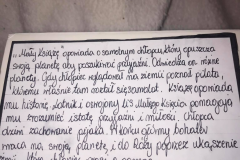 „Mały Książę" opowiada o samotnym chłopcu, który opuszcza
swoją planetę, aby poszukiwać przyjaźni. Odwiedza on inne
planety. Gdy chłopiec wylądował na ziemi poznał pilota,
któremu właśnie tam zepsuł się samolot. Książę opowiada
mu historię, lotnik i oswojony lis Małego Księcia pomagają
mu zrozumieć istotę przyjaźni i miłości, chłopca
dziwi zachowanie pijaka. W końcu główny bohater
wraca na swoją planetę i do Róży poprzez ukąszenie